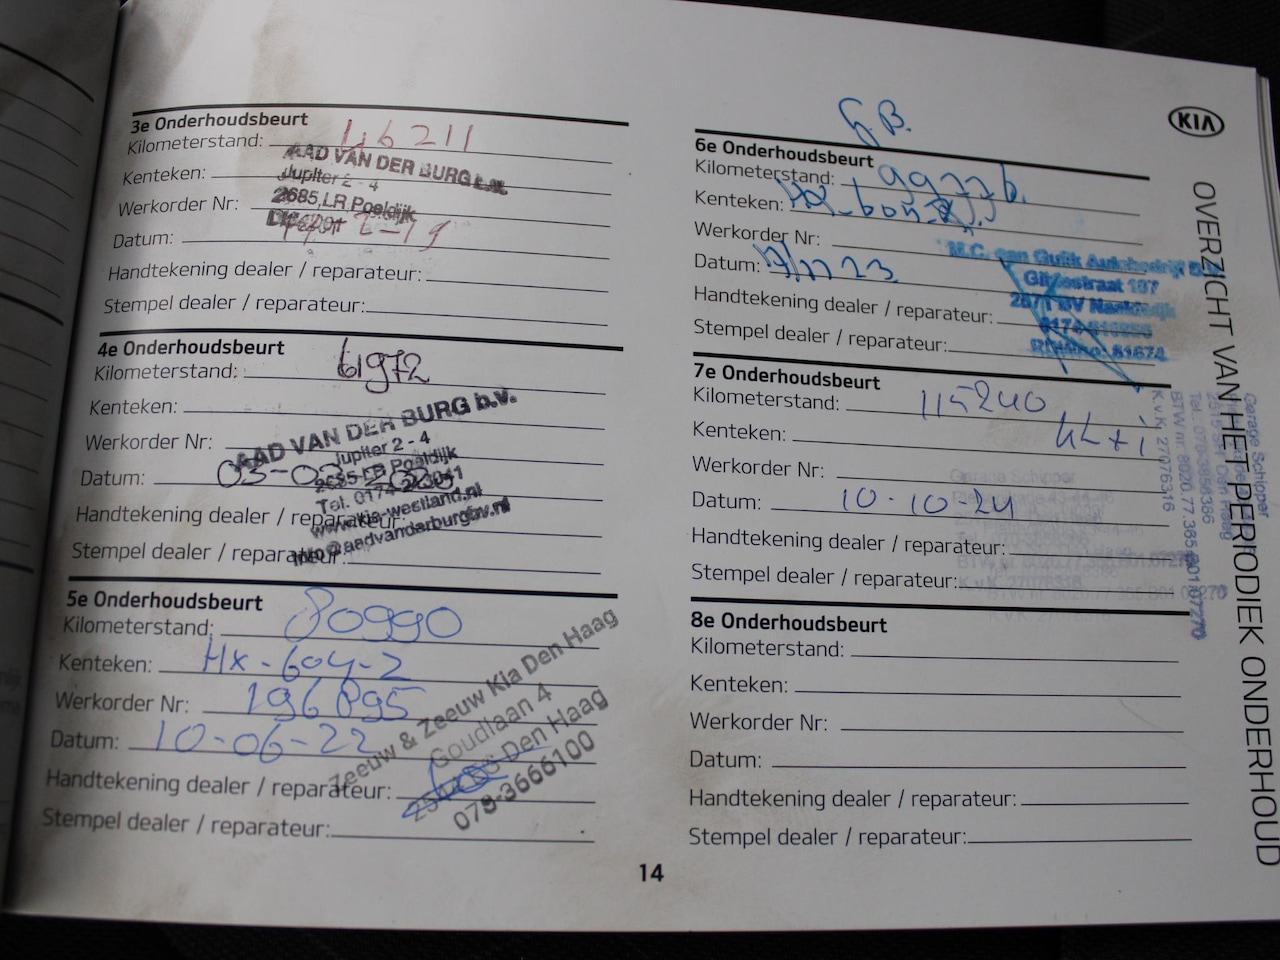 3e Onderhoudsbeurt
Kilometerstand: 46211
Kenteken:
Werkorder Nr:
Datum:
Handtekening dealer / reparateur:
Stempel dealer / reparateur:
AAD VAN DER BURG b.v.
Jupiter 2 - 4
2685 LR Poeldijk
4e Onderhoudsbeurt
Kilometerstand: 61972
Kenteken:
Werkorder Nr:
Datum: 03-
Handtekening dealer / reparateur:
Stempel dealer / reparateur:
AAD VAN DER BURG b.v.
Jupiter 2 - 4
2685 LR Poeldijk
Tel. 0174-
www.kia-westland.nl
info@aadvanderburgbv.nl
5e Onderhoudsbeurt
Kilometerstand: 80990
Kenteken: HX-604-Z
Werkorder Nr: 196895
Datum: 10-06-22
Handtekening dealer / reparateur:
Stempel dealer / reparateur:
Zeeuw & Zeeuw Kia Den Haag
Goudlaan 4
Den Haag
070-3666100
G.B.
6e Onderhoudsbeurt
Kilometerstand: 99776
Kenteken:
Werkorder Nr:
Datum:
Handtekening dealer / reparateur:
Stempel dealer / reparateur:
M.C. van Gulik Autobedrijf B.V.
7e Onderhoudsbeurt
Kilometerstand: 115240
Kenteken:
Werkorder Nr:
Datum: 10-10-24
Handtekening dealer / reparateur:
Stempel dealer / reparateur:
Garage Schipper
Den Haag
Tel. 070-3858366
BTW nr. 8020.77.365.B01.07270
K.v.K. 27076316
8e Onderhoudsbeurt
Kilometerstand:
Kenteken:
Werkorder Nr:
Datum:
Handtekening dealer / reparateur:
Stempel dealer / reparateur:
KIA
OVERZICHT VAN HET PERIODIEK ONDERHOUD
14